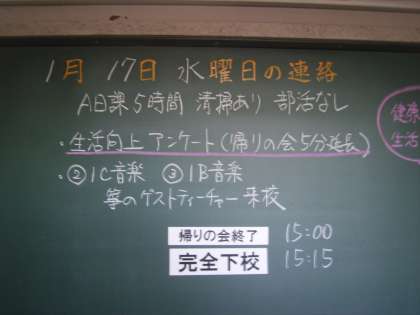 1月 17日 水曜日の連絡
A日課5時間 清掃あり 部活なし
・生活向上 アンケート(帰りの会5分延長)
・②1C音楽 ③1B音楽
箏のゲストティーチャー来校
帰りの会終了 15:00
完全下校 15:15
健康
生活